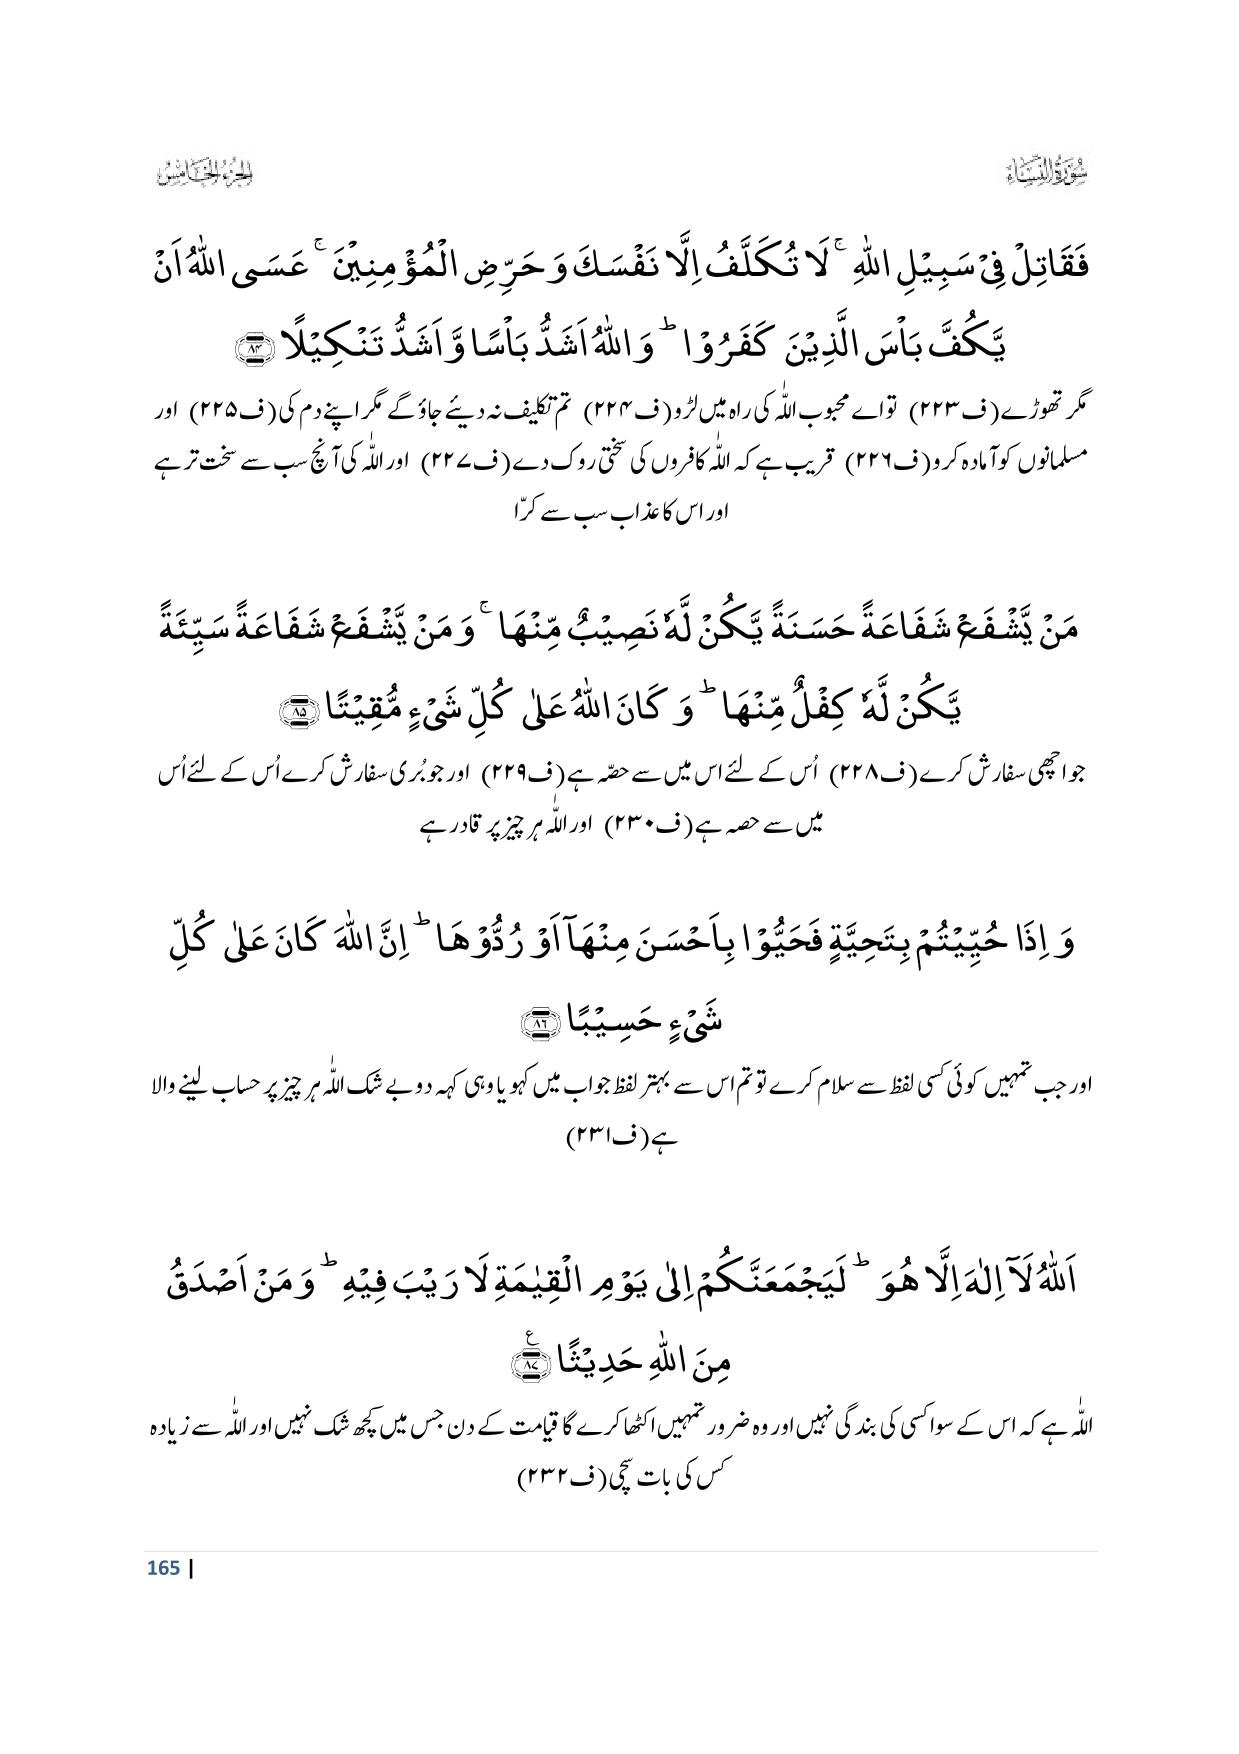 سُوْرَةُ النِّسَاء
الجزء الخامس
فَقَاتِلْ فِیْ سَبِیْلِ اللّٰهِ ۚ لَا تُكَلَّفُ اِلَّا نَفْسَكَ وَ حَرِّضِ الْمُؤْمِنِیْنَ ۚ عَسَى اللّٰهُ اَنْ
یَّكُفَّ بَاْسَ الَّذِیْنَ كَفَرُوْا ؕ وَ اللّٰهُ اَشَدُّ بَاْسًا وَّ اَشَدُّ تَنْكِیْلًا ﴿۸۴﴾
مگر تھوڑے (ف۲۲۳) تو اے محبوب اللّٰہ کی راہ میں لڑو (ف۲۲۴) تم تکلیف نہ دیئے جاؤ گے مگر اپنے دم کی (ف۲۲۵) اور
مسلمانوں کو آمادہ کرو (ف۲۲۶) قریب ہے کہ اللّٰہ کافروں کی سختی روک دے (ف۲۲۷) اور اللّٰہ کی آنچ سب سے سخت تر ہے
اور اس کا عذاب سب سے کرّا
مَنْ یَّشْفَعْ شَفَاعَةً حَسَنَةً یَّكُنْ لَّهٗ نَصِیْبٌ مِّنْهَا ۚ وَ مَنْ یَّشْفَعْ شَفَاعَةً سَیِّئَةً
یَّكُنْ لَّهٗ كِفْلٌ مِّنْهَا ؕ وَ كَانَ اللّٰهُ عَلٰى كُلِّ شَیْءٍ مُّقِیْتًا ﴿۸۵﴾
جو اچھی سفارش کرے (ف۲۲۸) اُس کے لئے اس میں سے حصّہ ہے (ف۲۲۹) اور جو بُری سفارش کرے اُس کے لئے اُس
میں سے حصہ ہے (ف۲۳۰) اور اللّٰہ ہر چیز پر قادر ہے
وَ اِذَا حُیِّیْتُمْ بِتَحِیَّةٍ فَحَیُّوْا بِاَحْسَنَ مِنْهَاۤ اَوْ رُدُّوْهَا ؕ اِنَّ اللّٰهَ كَانَ عَلٰى كُلِّ
شَیْءٍ حَسِیْبًا ﴿۸۶﴾
اور جب تمہیں کوئی کسی لفظ سے سلام کرے تو تم اس سے بہتر لفظ جواب میں کہو یا وہی کہہ دو بے شک اللّٰہ ہر چیز پر حساب لینے والا
ہے (ف۲۳۱)
اَللّٰهُ لَاۤ اِلٰهَ اِلَّا هُوَ ؕ لَیَجْمَعَنَّكُمْ اِلٰى یَوْمِ الْقِیٰمَةِ لَا رَیْبَ فِیْهِ ؕ وَ مَنْ اَصْدَقُ
مِنَ اللّٰهِ حَدِیْثًا ﴿۸۷﴾ ع
اللّٰہ ہے کہ اس کے سوا کسی کی بندگی نہیں اور وہ ضرور تمہیں اکٹھا کرے گا قیامت کے دن جس میں کچھ شک نہیں اور اللّٰہ سے زیادہ
کس کی بات سچی (ف۲۳۲)
165 |